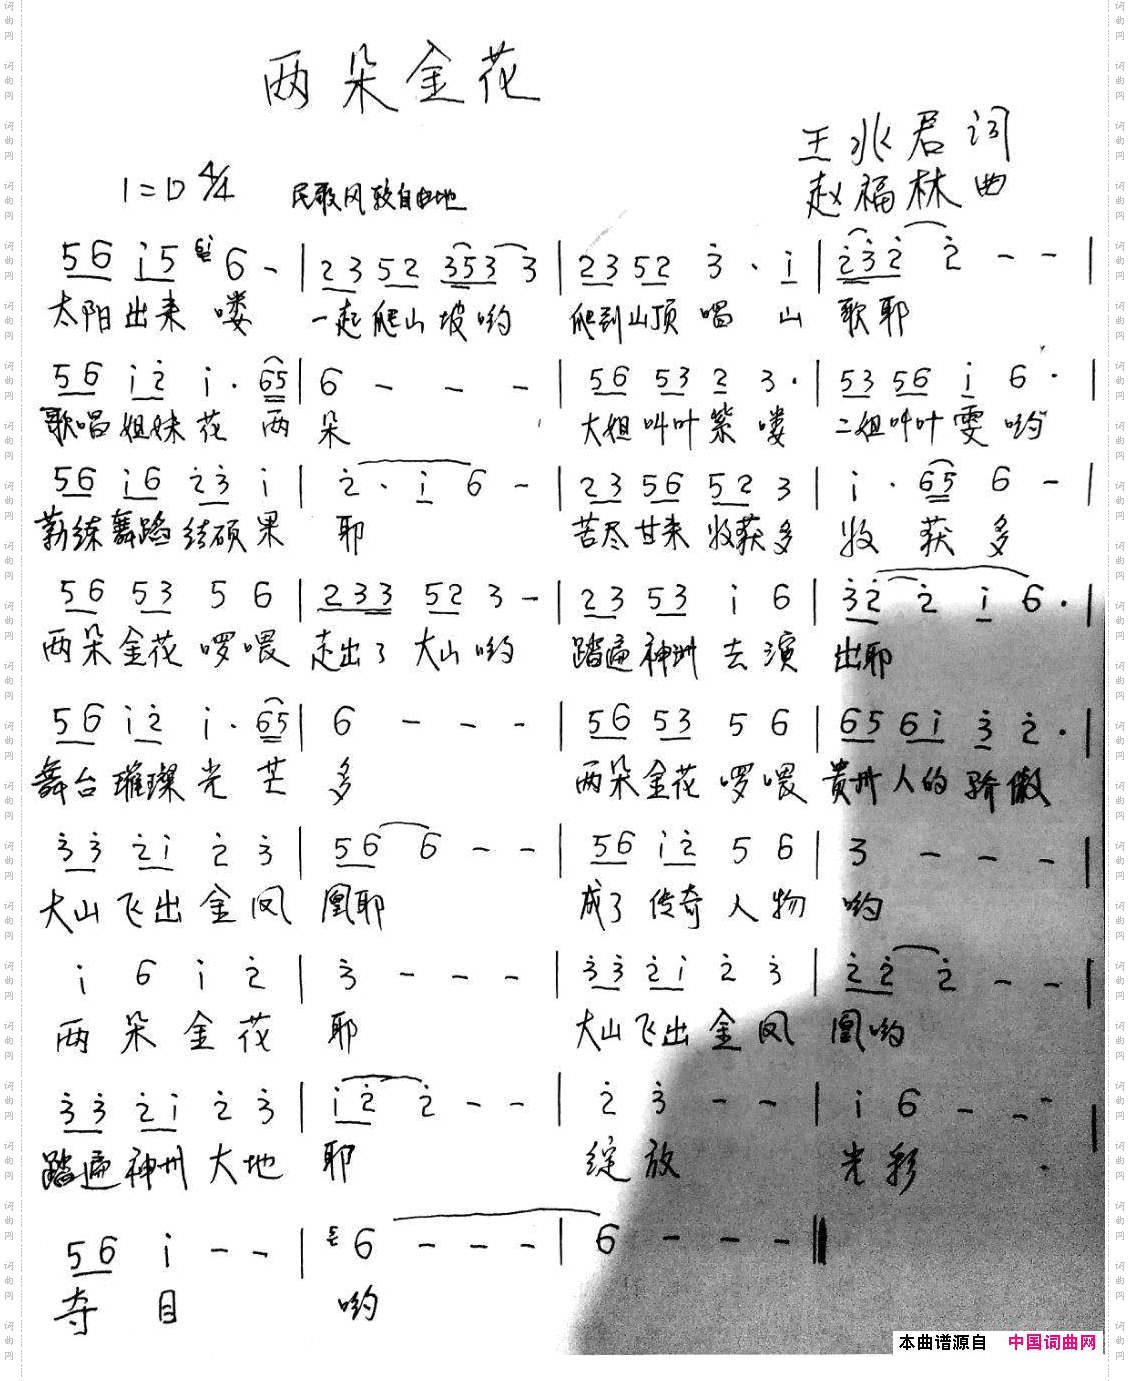 两朵金花
王兆君 词
1=D 4/4 民歌风 较自由地
赵福林 曲
56 i5 6 - | 23 52 353 3 | 23 52 3 · i | 232 2 - - |
太阳出来喽 一起爬山坡哟 爬到山顶唱山歌耶
56 i2 i · 65 | 6 - - - | 56 53 2 3 · | 53 56 i 6 · |
歌唱姐妹花两朵 大姐叫叶紫喽 二姐叫叶雯哟
56 i6 23 i | 2 · i 6 - | 23 56 52 3 | i · 65 6 - |
勤练舞蹈结硕果耶 苦尽甘来收获多 收获多
56 53 5 6 | 233 52 3 - | 23 53 i 6 | 32 2 i 6 · |
两朵金花啰喂 走出了大山哟 踏遍神州去演出耶
56 i2 i · 65 | 6 - - - | 56 53 5 6 | 65 6i 3 2 · |
舞台璀璨光芒多 两朵金花啰喂 贵州人的骄傲
33 2i 2 3 | 56 6 - - | 56 i2 5 6 | 3 - - - |
大山飞出金凤凰耶 成了传奇人物哟
i 6 i 2 | 3 - - - | 33 2i 2 3 | 22 2 - - |
两朵金花耶 大山飞出金凤凰哟
33 2i 2 3 | i2 2 - - | 2 3 - - | i 6 - - - |
踏遍神州大地耶 绽放光彩
56 i - - | 5 6 - - - | 6 - - - ‖
夺目哟
本曲谱源自 中国词曲网